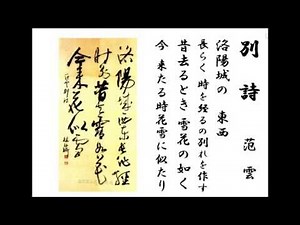 別詩 范雲
洛陽城の 東西
長らく 時を経るの別れを作す
昔去るとき 雪花の如く
今 来たる時花雪に似たり
洛陽城東西長作經
時別昔去雪如花
今來花似雪